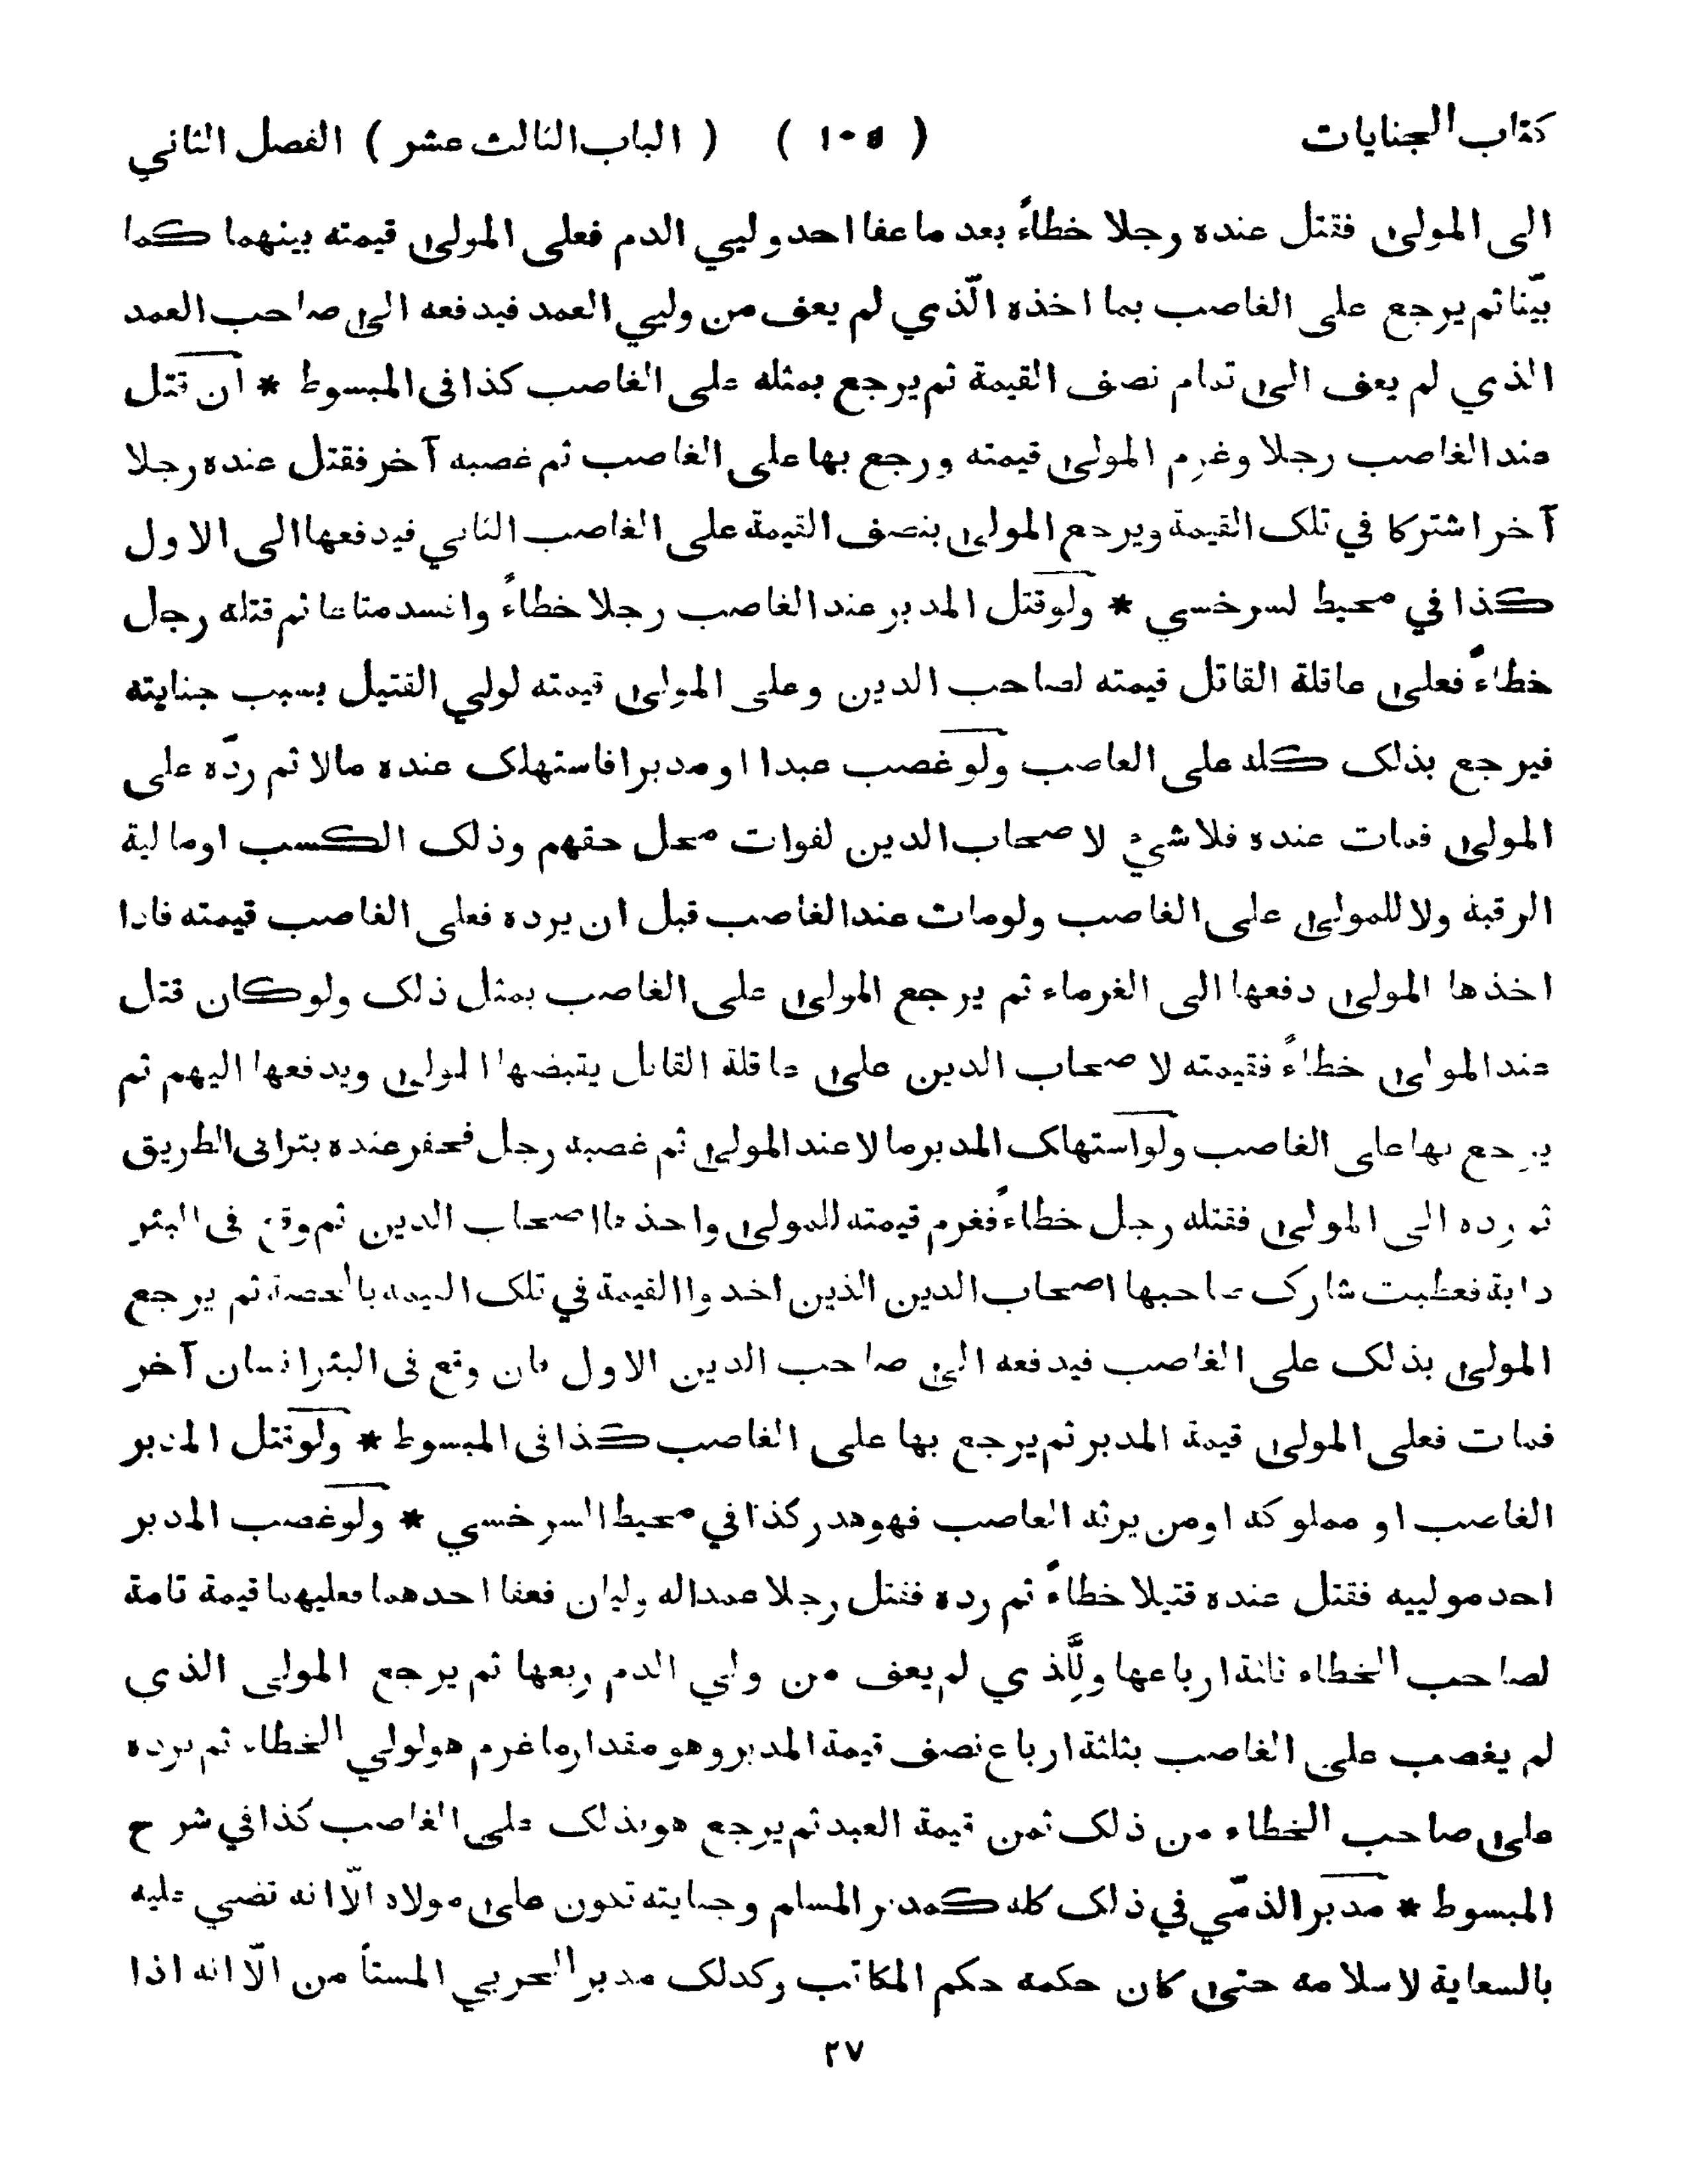 كتاب الجنايات ( ١٠٥ ) ( الباب الثالث عشر ) الفصل الثاني
الى المولى فقتل عنده رجلا خطاءً بعد ما عفا احد وليي الدم فعلى المولى قيمته بينهما كما
بيّنا ثم يرجع على الغاصب بما اخذه الّذي لم يعف من وليي العمد فيدفعه الى صاحب العمد
الذي لم يعف الى تمام نصف القيمة ثم يرجع بمثله على الغاصب كذا في المبسوط * ان قتل
عند الغاصب رجلا وغرم المولى قيمته ورجع بها على الغاصب ثم غصبه آخر فقتل عنده رجلا
آخر اشتركا في تلك القيمة ويرجع المولى بنصف القيمة على الغاصب الثاني فيدفعها الى الاول
كذا في محيط لسرخسي * ولو قتل المدبر عند الغاصب رجلا خطاءً وافسد متاعا ثم قتله رجل
خطاءً فعلى عاقلة القاتل قيمته لصاحب الدين وعلى المولى قيمته لولي القتيل بسبب جنايته
فيرجع بذلك كله على الغاصب ولو غصب عبدا او مدبرا فاستهلك عنده مالا ثم ردّه على
المولى فمات عنده فلا شيء لاصحاب الدين لفوات محل حقهم وذلك الكسب او مالية
الرقبة ولا للمولى على الغاصب ولو مات عند الغاصب قبل ان يرده فعلى الغاصب قيمته فاذا
اخذها المولى دفعها الى الغرماء ثم يرجع المولى على الغاصب بمثل ذلك ولو كان قتل
عند المولى خطاءً فقيمته لاصحاب الدين على عاقلة القاتل يقبضها المولى ويدفعها اليهم ثم
يرجع بها على الغاصب ولو استهلك المدبر مالا عند المولى ثم غصبه رجل فحفر عنده بئرا في الطريق
ثم رده الى المولى فقتله رجل خطاءً فغرم قيمته للمولى واخذها اصحاب الدين ثم وقع في البئر
دابة فعطبت شارك صاحبها اصحاب الدين الذين اخذوا القيمة في تلك القيمة بالحصة ثم يرجع
المولى بذلك على الغاصب فيدفعه الى صاحب الدين الاول فان وقع في البئر انسان آخر
فمات فعلى المولى قيمة المدبر ثم يرجع بها على الغاصب كذا في المبسوط * ولو قتل المدبر
الغاصب او مملوكه او من يرثه الغاصب فهو هدر كذا في محيط السرخسي * ولو غصب المدبر
احد مولييه فقتل عنده قتيلا خطاءً ثم رده فقتل رجلا عمدا له وليان فعفا احدهما فعليهما قيمة تامة
لصاحب الخطاء ثلثة ارباعها ولِلّذي لم يعف من ولي الدم ربعها ثم يرجع المولى الذي
لم يغصب على الغاصب بثلثة ارباع نصف قيمة المدبر وهو مقدار ما غرم هو لولي الخطاء ثم يرده
على صاحب الخطاء من ذلك ثمن قيمة العبد ثم يرجع هو بذلك على الغاصب كذا في شرح
المبسوط * مدبر الذمّي في ذلك كله كمدبر المسلم وجنايته تكون على مولاه الّا انه تضي عليه
بالسعاية لاسلامه حتى كان حكمه حكم المكاتب وكذلك مدبر الحربي المستأ من الّا انه اذا
٢٧